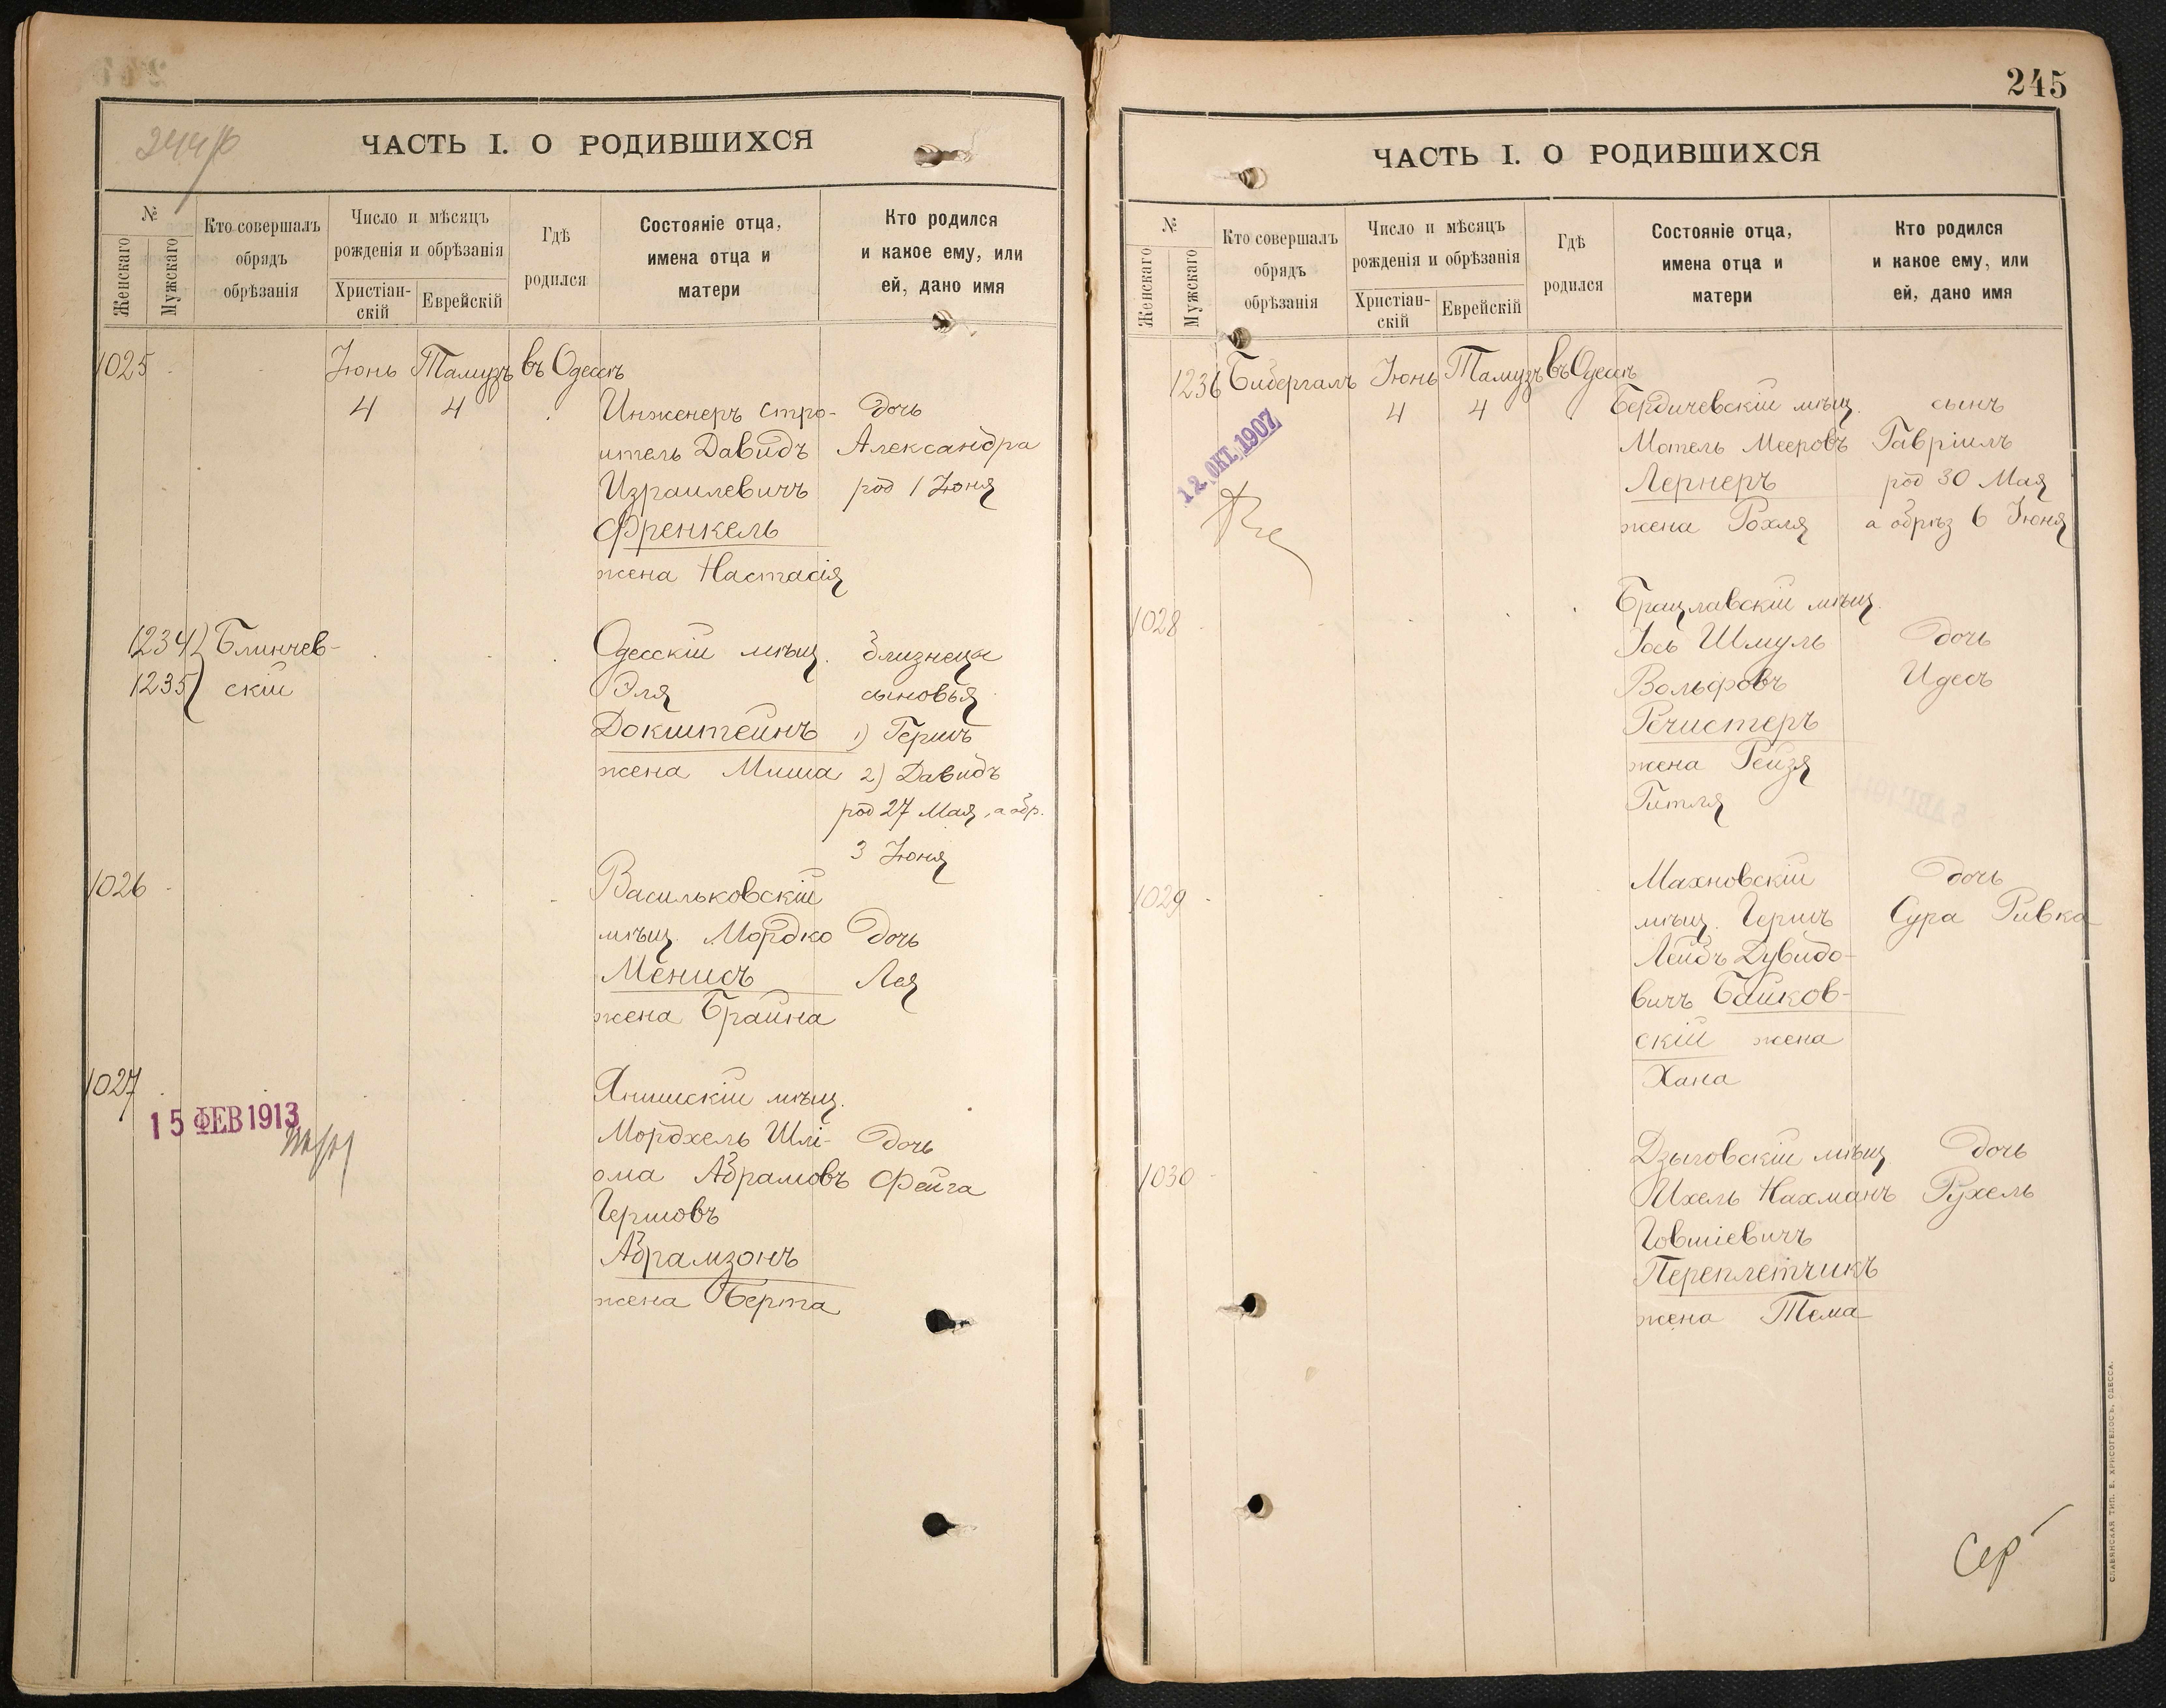 244 р
ЧАСТЬ I. О РОДИВШИХСЯ
№
Женскаго
Мужскаго
Кто совершалъ
обрядъ
обрѣзанія
Число и мѣсяцъ
рожденія и обрѣзанія
Христіан-
скій
Еврейскій
Гдѣ
родился
Состояніе отца,
имена отца и
матери
Кто родился
и какое ему, или
ей, дано имя
1025
Іюнь Тамузъ въ Одессѣ
4 4
Инженеръ стро-
итель Давидъ
Израилевичъ
Френкель
жена Настасія
дочь
Александра
род 1 Іюня
1234
1235
Блинчев-
скій
Одесскій мѣщ.
Эля
Докштейнъ
жена Миша
близнецы
сыновья
1) Гершъ
2) Давидъ
род 27 Мая, а обр.
3 Іюня
1026
Васильковскій
мѣщ. Мордко
Менисъ
жена Брайна
дочь
Лея
1027
15 ФЕВ 1913
Янишскій мѣщ.
Мордхель Шлі-
ома Абрамовъ
Гершовъ
Абрамзонъ
жена Берта
дочь
Фейга
245
ЧАСТЬ I. О РОДИВШИХСЯ
№
Женскаго
Мужскаго
Кто совершалъ
обрядъ
обрѣзанія
Число и мѣсяцъ
рожденія и обрѣзанія
Христіан-
скій
Еврейскій
Гдѣ
родился
Состояніе отца,
имена отца и
матери
Кто родился
и какое ему, или
ей, дано имя
1236 Бибергалъ Іюнь Тамузъ въ Одессѣ
4 4
12 ОКТ. 1907
Бердичевскій мѣщ.
Мотель Мееровъ
Лернеръ
жена Рохля
сынъ
Гавріилъ
род 30 Мая
а обрѣз 6 Іюня
1028
Брацлавскій мѣщ.
Іось Шмуль
Вольфовъ
Речистеръ
жена Рейзя
Гитля
дочь
Идесъ
1029
Махновскій
мѣщ. Гершъ
Лейбъ Дувидо-
вичъ Байков-
скій жена
Хана
дочь
Сура Ривка
1030
Дзыговскій мѣщ.
Ихель Нахманъ
Іовшіевичъ
Переплетчикъ
жена Тема
дочь
Рухель
Сер
СЛАВЯНСКАЯ ТИП. Е. ХРИСОГЕЛОСЪ, ОДЕССА.